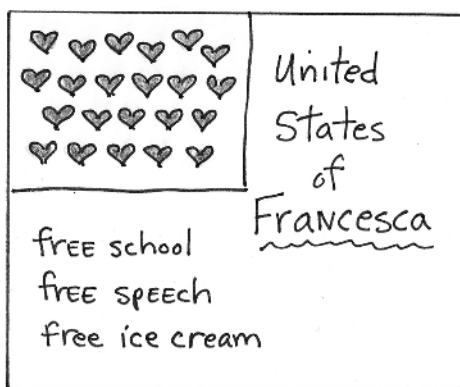 United
States
of
Francesca
frEE school
frEE spEEch
free ice cream